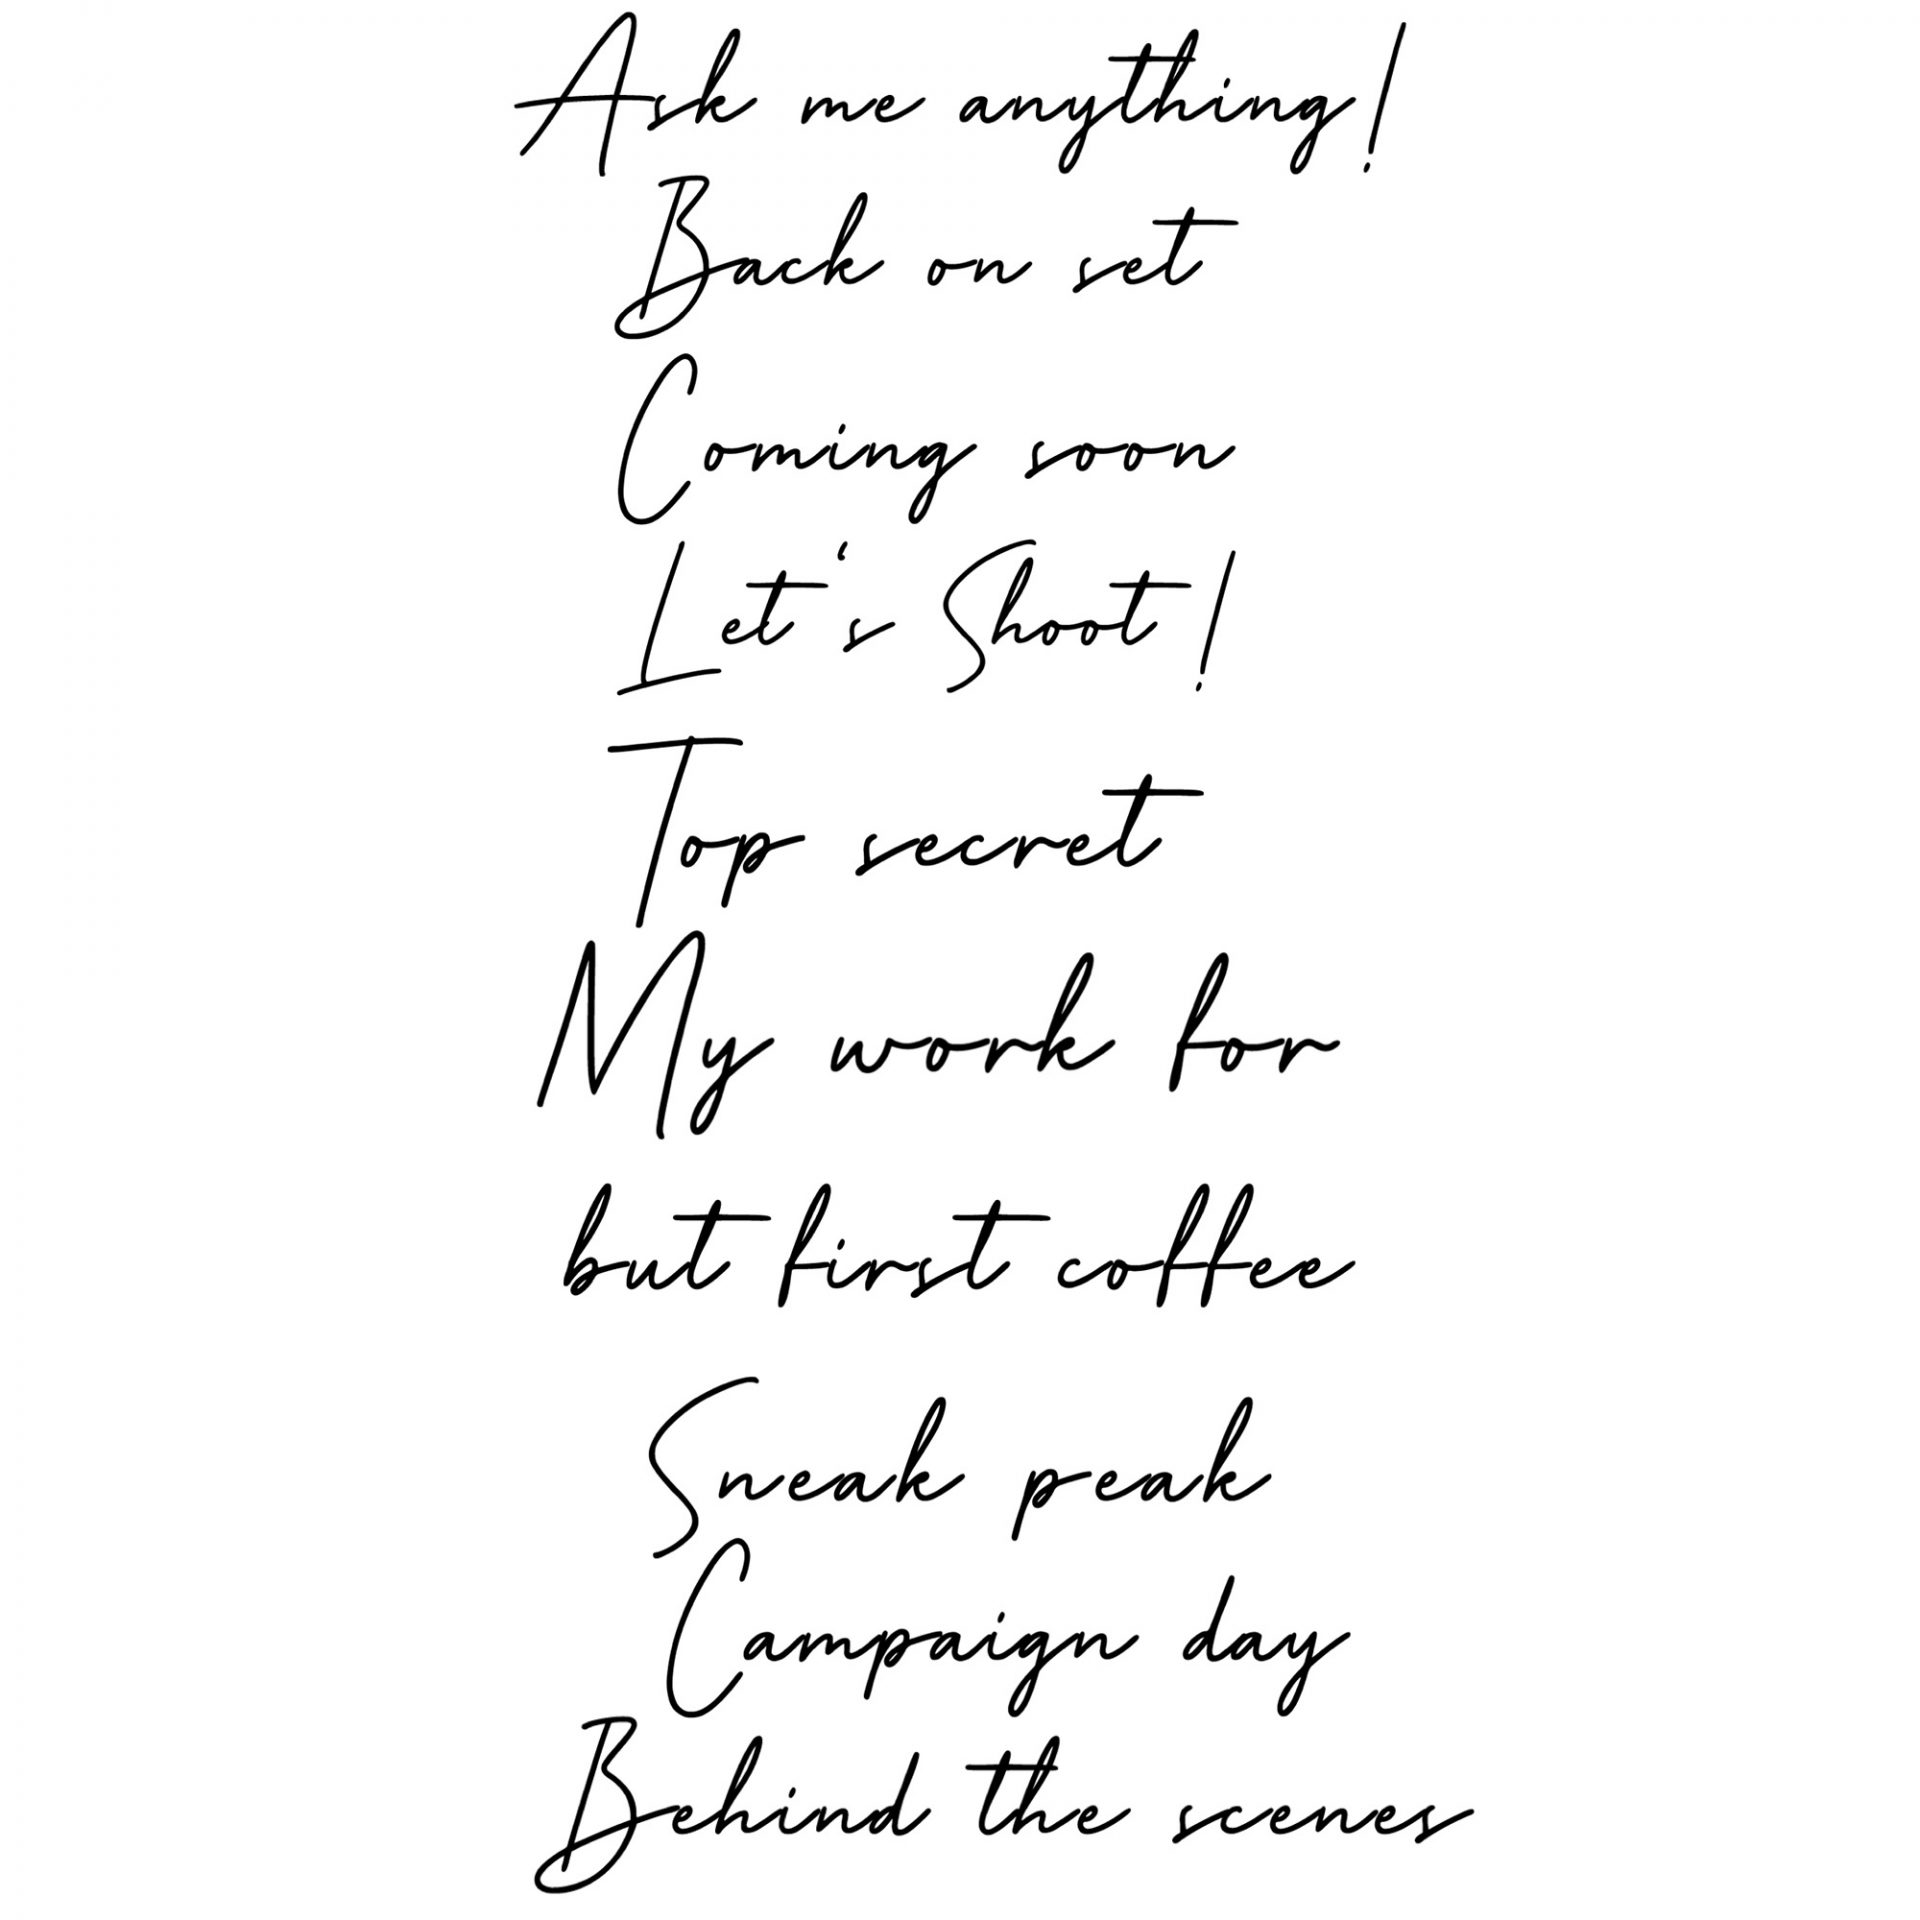 Ask me anything!
Back on set
Coming soon
Let‘s Shoot!
Top secret
My work for
but first coffee
Sneak peak
Campaign day
Behind the scenes